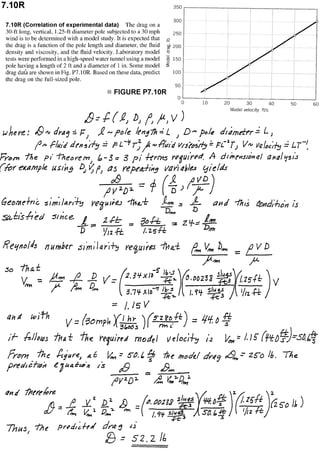 7.10R
7.10R (Correlation of experimental data) The drag on a
30-ft long, vertical, 1.25-ft diameter pole subjected to a 30 mph
wind is to be determined with a model study. It is expected that
the drag is a function of the pole length and diameter, the fluid
density and viscosity, and the fluid velocity. Laboratory model
tests were performed in a high-speed water tunnel using a model
pole having a length of 2 ft and a diameter of 1 in. Some model
drag data are shown in Fig. P7.10R. Based on these data, predict
the drag on the full-sized pole.
■ FIGURE P7.10R
350
300
250
200
150
100
50
0
Model drag, lb
0 10 20 30 40 50 60
Model velocity, ft/s
𝒟 = f(ℓ, D, ρ, μ, V)
where: 𝒟 ~ drag ≐ F, ℓ ~ pole length ≐ L, D ~ pole diameter ≐ L,
ρ ~ fluid density ≐ FL⁻⁴T², μ ~ fluid viscosity ≐ FL⁻²T, V ~ velocity ≐ LT⁻¹.
From the pi theorem, 6-3 = 3 pi terms required. A dimensional analysis
(for example using D, V, ρ, as repeating variables) yields
𝒟/(ρV²D²) = φ(ℓ/D, ρVD/μ)
Geometric similarity requires that ℓm/Dm = ℓ/D and this condition is
satisfied since ℓ/D = 2ft/(1/12 ft) = 30ft/1.25ft = 24 = ℓm/Dm
Reynolds number similarity requires that ρm Vm Dm/μm = ρVD/μ
so that
Vm = μm/μ ρ/ρm D/Dm V = (2.34×10⁻⁵ lb·s/ft²/3.74×10⁻⁷ lb·s/ft²)(0.00238 slugs/ft³/1.94 slugs/ft³)(1.25ft/(1/12 ft)) V
= 1.15 V
and with V = (30mph)(1 hr/3600s)(5280 ft/mi) = 44.0 ft/s
it follows that the required model velocity is Vm = 1.15 (44.0 ft/s) = 50.6 ft/s
From the figure, at Vm = 50.6 ft/s the model drag 𝒟m = 250 lb. The
prediction equation is 𝒟/(ρV²D²) = 𝒟m/(ρm Vm² Dm²)
and therefore
𝒟 = ρ/ρm V²/Vm² D²/Dm² 𝒟m = (0.00238 slugs/ft³/1.94 slugs/ft³)(44.0 ft/s/50.6 ft/s)²(1.25ft/(1/12 ft))²(250 lb)
Thus, the predicted drag is
𝒟 = 52.2 lb